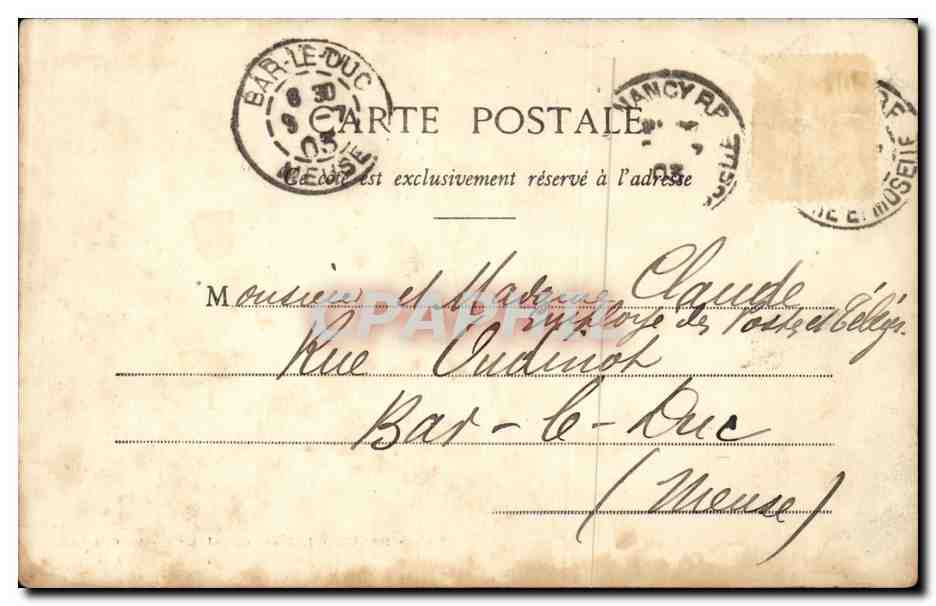 BAR-LE-DUC
8 30
9 -7
03
MEUSE
NANCY R.P.
03
E ET MOSELLE
CARTE POSTALE
Ce côté est exclusivement réservé à l'adresse
Monsieur et Madame Claude
Employé des Postes et Télégr.
Rue Oudinot
Bar-le-Duc
(Meuse)
CPAPHIL